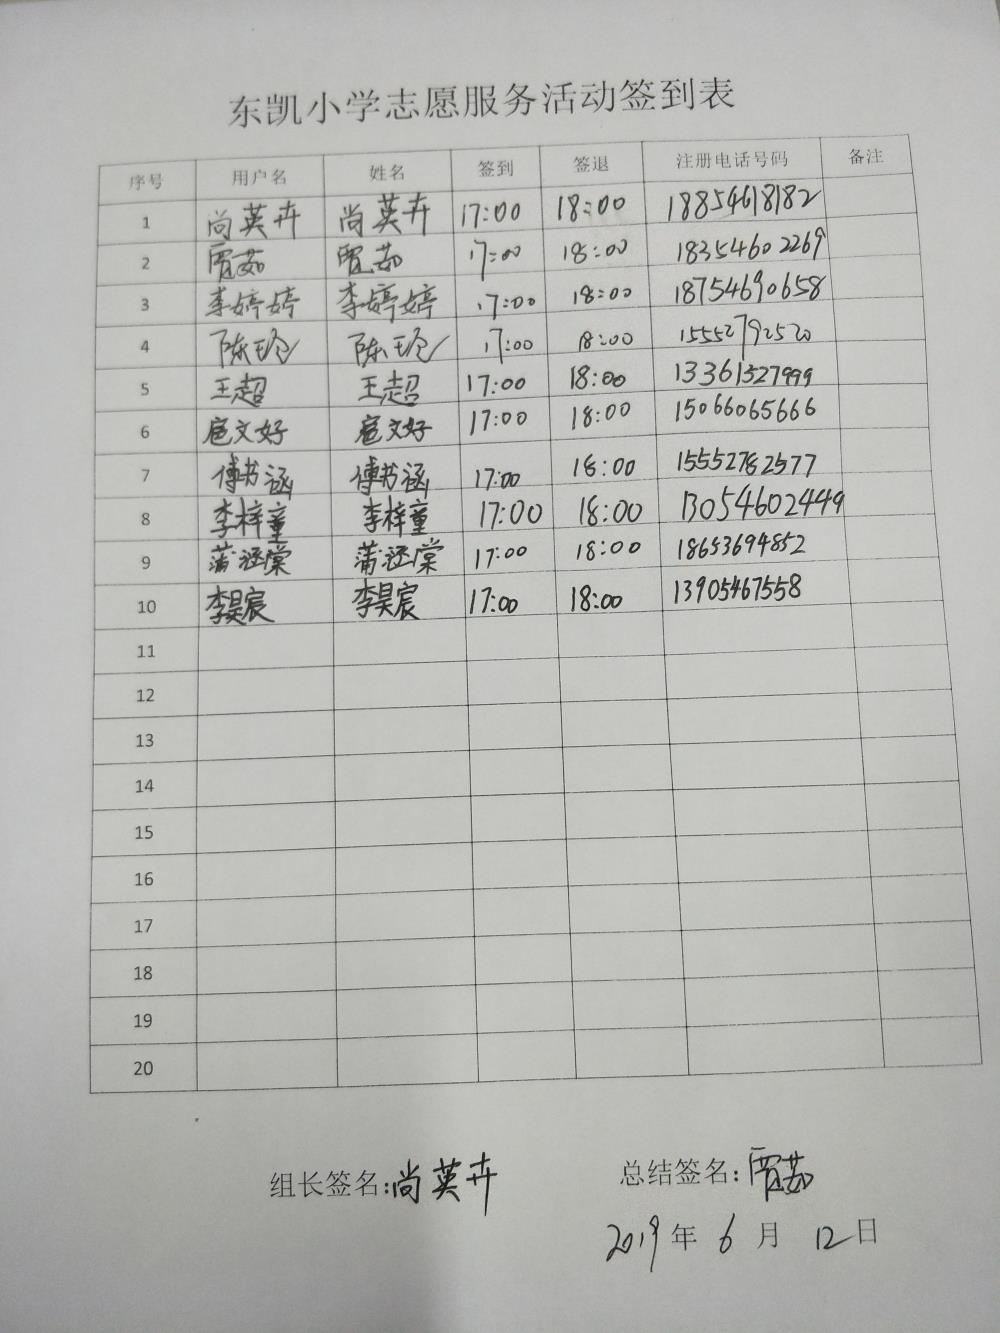 东凯小学志愿服务活动签到表
序号 用户名 姓名 签到 签退 注册电话号码 备注
1 尚英卉 尚英卉 17:00 18:00 18854618182
2 贾茹 贾茹 17:00 18:00 18354602269
3 李婷婷 李婷婷 17:00 18:00 18754690658
4 陈玲 陈玲 17:00 18:00 15552792520
5 王超 王超 17:00 18:00 13361527999
6 扈文好 扈文好 17:00 18:00 15066065666
7 傅书涵 傅书涵 17:00 18:00 15552782577
8 李梓童 李梓童 17:00 18:00 13054602449
9 蒲涵棠 蒲涵棠 17:00 18:00 18653694852
10 李昊宸 李昊宸 17:00 18:00 13905467558
11
12
13
14
15
16
17
18
19
20
组长签名:尚英卉 总结签名:贾茹
2019年 6 月 12日